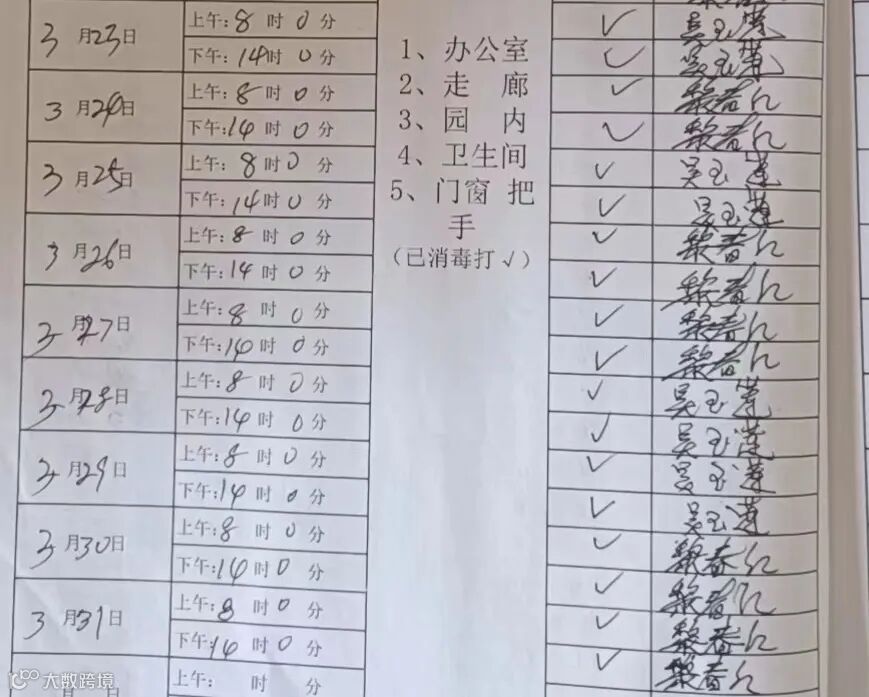 3月23日 上午:8时0分 ✓ 吴玉莲
下午:14时0分 ✓ 吴玉莲
3月24日 上午:8时0分 ✓ 黎春红
下午:14时0分 ✓ 黎春红
3月25日 上午:8时0分 ✓ 吴玉莲
下午:14时0分 ✓ 吴玉莲
3月26日 上午:8时0分 ✓ 黎春红
下午:14时0分 ✓ 黎春红
3月27日 上午:8时0分 ✓ 黎春红
下午:14时0分 ✓ 黎春红
3月28日 上午:8时0分 ✓ 吴玉莲
下午:14时0分 ✓ 吴玉莲
3月29日 上午:8时0分 ✓ 吴玉莲
下午:14时0分 ✓ 吴玉莲
3月30日 上午:8时0分 ✓ 黎春红
下午:14时0分 ✓ 黎春红
3月31日 上午:8时0分 ✓ 黎春红
下午:14时0分 ✓ 黎春红
上午: 时 分
1、办公室
2、走 廊
3、园 内
4、卫生间
5、门窗 把
手
(已消毒打√)
大数跨境